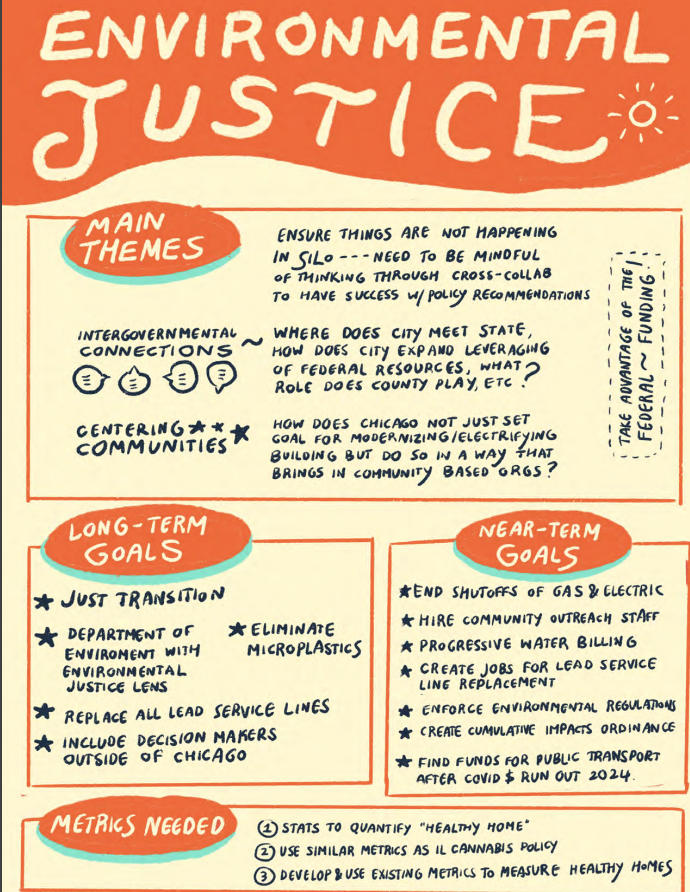 ENVIRONMENTAL
JUSTICE
MAIN
THEMES
ENSURE THINGS ARE NOT HAPPENING
IN SILO --- NEED TO BE MINDFUL
OF THINKING THROUGH CROSS-COLLAB
TO HAVE SUCCESS W/ POLICY RECOMMENDATIONS
INTERGOVERNMENTAL
CONNECTIONS ~
WHERE DOES CITY MEET STATE,
HOW DOES CITY EXPAND LEVERAGING
OF FEDERAL RESOURCES, WHAT
ROLE DOES COUNTY PLAY, ETC?
CENTERING
COMMUNITIES
HOW DOES CHICAGO NOT JUST SET
GOAL FOR MODERNIZING/ELECTRIFYING
BUILDING BUT DO SO IN A WAY THAT
BRINGS IN COMMUNITY BASED ORGS?
TAKE ADVANTAGE OF THE
FEDERAL ~ FUNDING!
LONG-TERM
GOALS
★ JUST TRANSITION
★ DEPARTMENT OF
ENVIROMENT WITH
ENVIRONMENTAL
JUSTICE LENS
★ ELIMINATE
MICROPLASTICS
★ REPLACE ALL LEAD SERVICE LINES
★ INCLUDE DECISION MAKERS
OUTSIDE OF CHICAGO
NEAR-TERM
GOALS
★ END SHUTOFFS OF GAS & ELECTRIC
★ HIRE COMMUNITY OUTREACH STAFF
★ PROGRESSIVE WATER BILLING
★ CREATE JOBS FOR LEAD SERVICE
LINE REPLACEMENT
★ ENFORCE ENVIRONMENTAL REGULATIONS
★ CREATE CUMULATIVE IMPACTS ORDINANCE
★ FIND FUNDS FOR PUBLIC TRANSPORT
AFTER COVID $ RUN OUT 2024.
METRICS NEEDED
① STATS TO QUANTIFY "HEALTHY HOME"
② USE SIMILAR METRICS AS IL CANNABIS POLICY
③ DEVELOP & USE EXISTING METRICS TO MEASURE HEALTHY HOMES